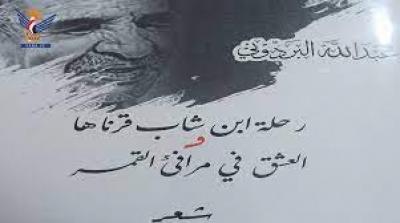 عبدالله البردوني
رحلة ابن شاب قرناها
و
العشق في مرافئ القمر
شعر